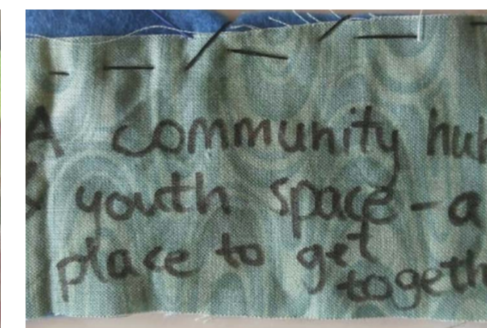 A community hub
& youth space - a
place to get
togeth